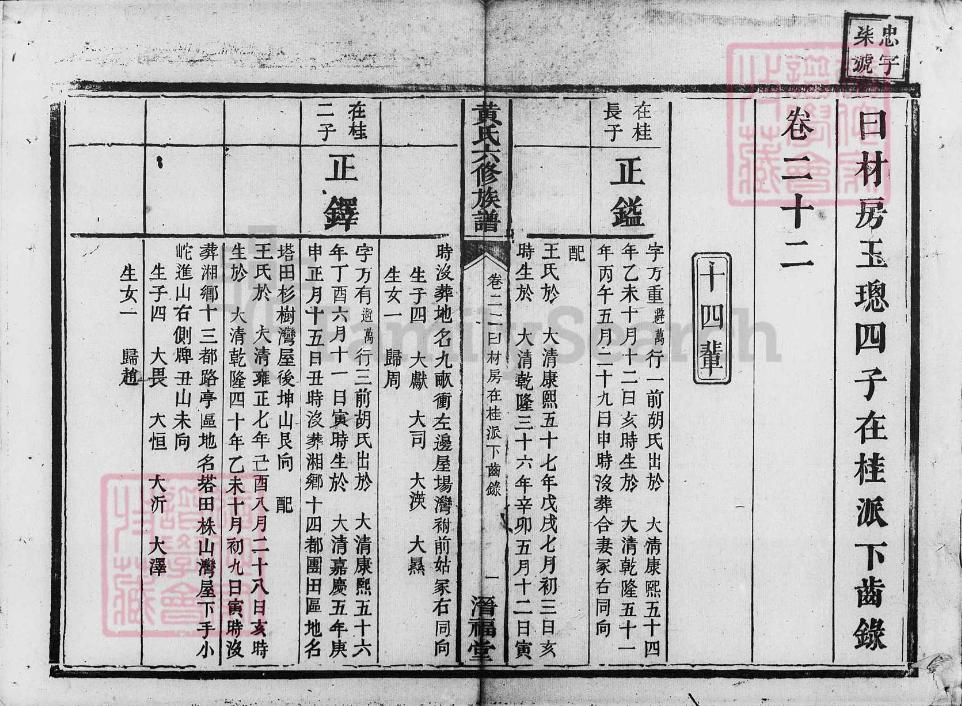 忠字
柒號
曰材房玉璁四子在桂派下齒錄
卷二十二
十四輩
在桂
長子
正鎰
字万重辭萬行一前胡氏出於 大清康熙五十四
年乙未十月十二日亥時生於 大清乾隆五十一
年丙午五月二十九日申時沒葬合妻冢右同向
配
王氏於 大清康熙五十七年戊戌七月初三日亥
時生於 大清乾隆三十六年辛卯五月十二日寅
黃氏六修族譜
卷二二曰材房在桂派下齒錄
一
濳福堂
時沒葬地名九畝衝左邊屋場灣祔前姑冢右同向
生子四 大獻 大司 大渶 大㬎
生女一 歸周
在桂
二子
正鐸
字万有
萬行三前胡氏出於 大清康熙五十六
年丁酉六月十一日寅時生於 大清嘉慶五年庚
申正月十五日丑時沒葬湘鄉十四都團田區地名
塔田杉樹灣屋後坤山艮向 配
王氏於 大清雍正七年己酉八月二十八日亥時
生於 大清乾隆四十年乙未十月初九日寅時沒
葬湘鄉十三都路亭區地名塔田株山灣屋下手小
岮進山右側牌丑山未向
生子四 大畏 大恒 大沂 大澤
生女一 歸趙
FamilySearch